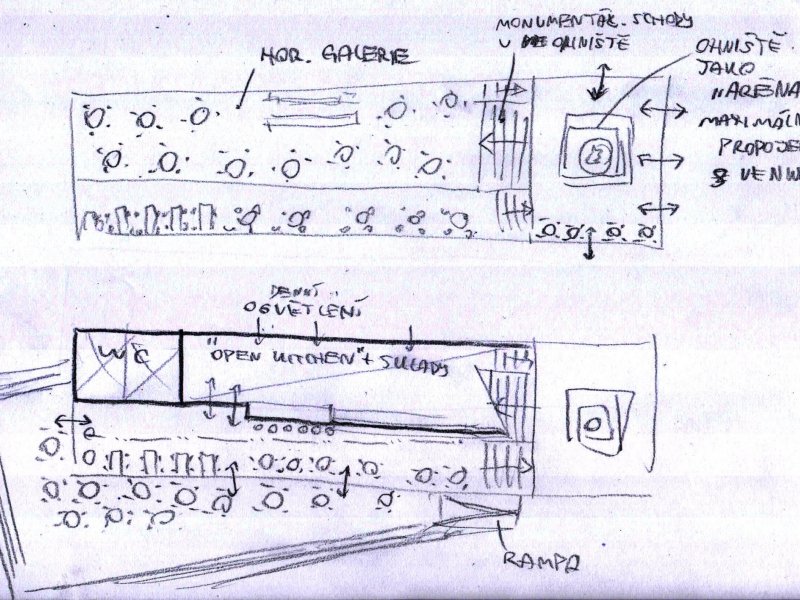 HOR. GALERIE
MONUMENTÁL. SCHODY
U OHNIŠTĚ
OHNIŠTĚ
JAKO
"ARÉNA
MAXIMÁLN
PROPOJE
S VENK
DENNÍ
OSVĚTLENÍ
WC
"OPEN KITCHEN" + SKLADY
RAMPA